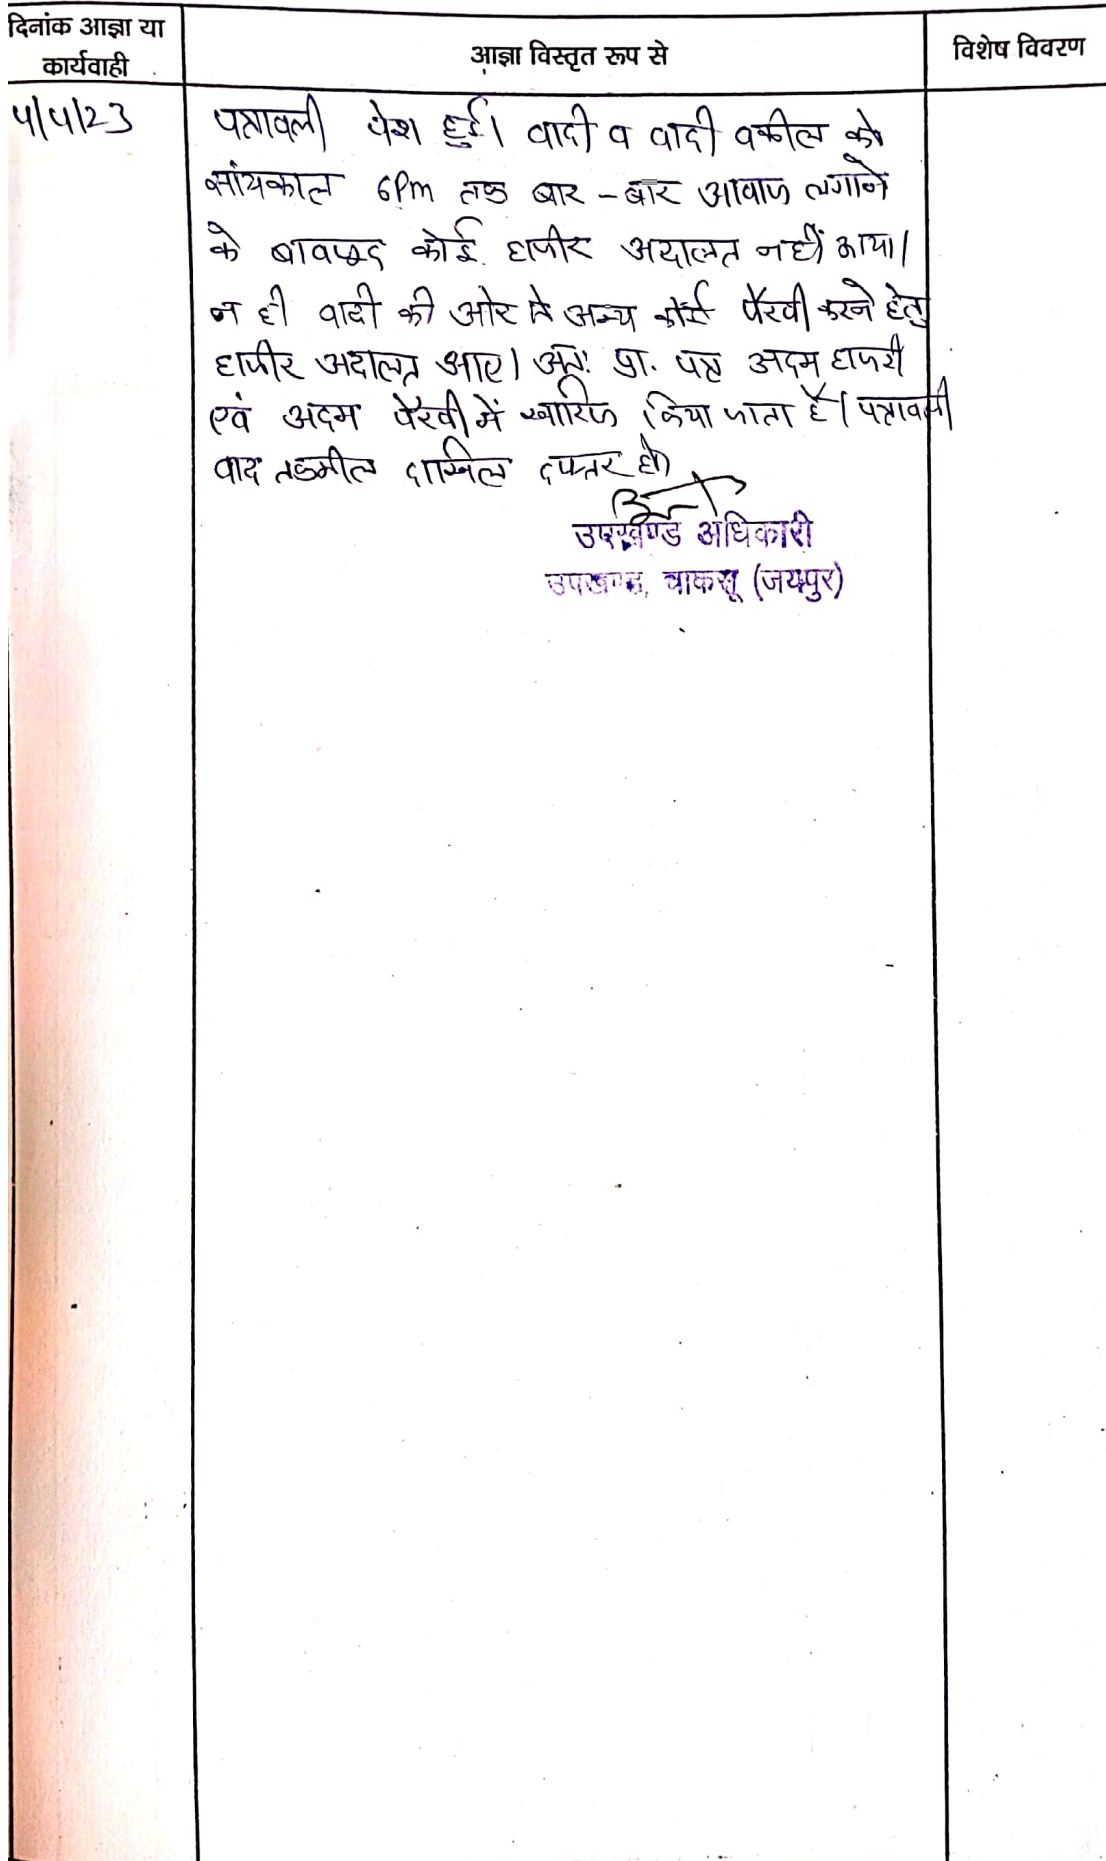 दिनांक आज्ञा या
कार्यवाही
आज्ञा विस्तृत रूप से
विशेष विवरण
4/4/23
पत्रावली पेश हुई। वादी व वादी वकील को
सांयकाल 6Pm तक बार - बार आवाज लगाने
के बावजूद कोई हाजीर अदालत नहीं आया।
न ही वादी की ओर से अन्य कोई पैरवी करने हेतु
हाजीर अदालत आए। अतः प्रा. पत्र अदम हाजरी
एवं अदम पैरवी में खारिज किया जाता है। पत्रावली
वाद तकमील दाखिल दफ्तर हो।
उपखण्ड अधिकारी
उपखण्ड, चाकसू (जयपुर)